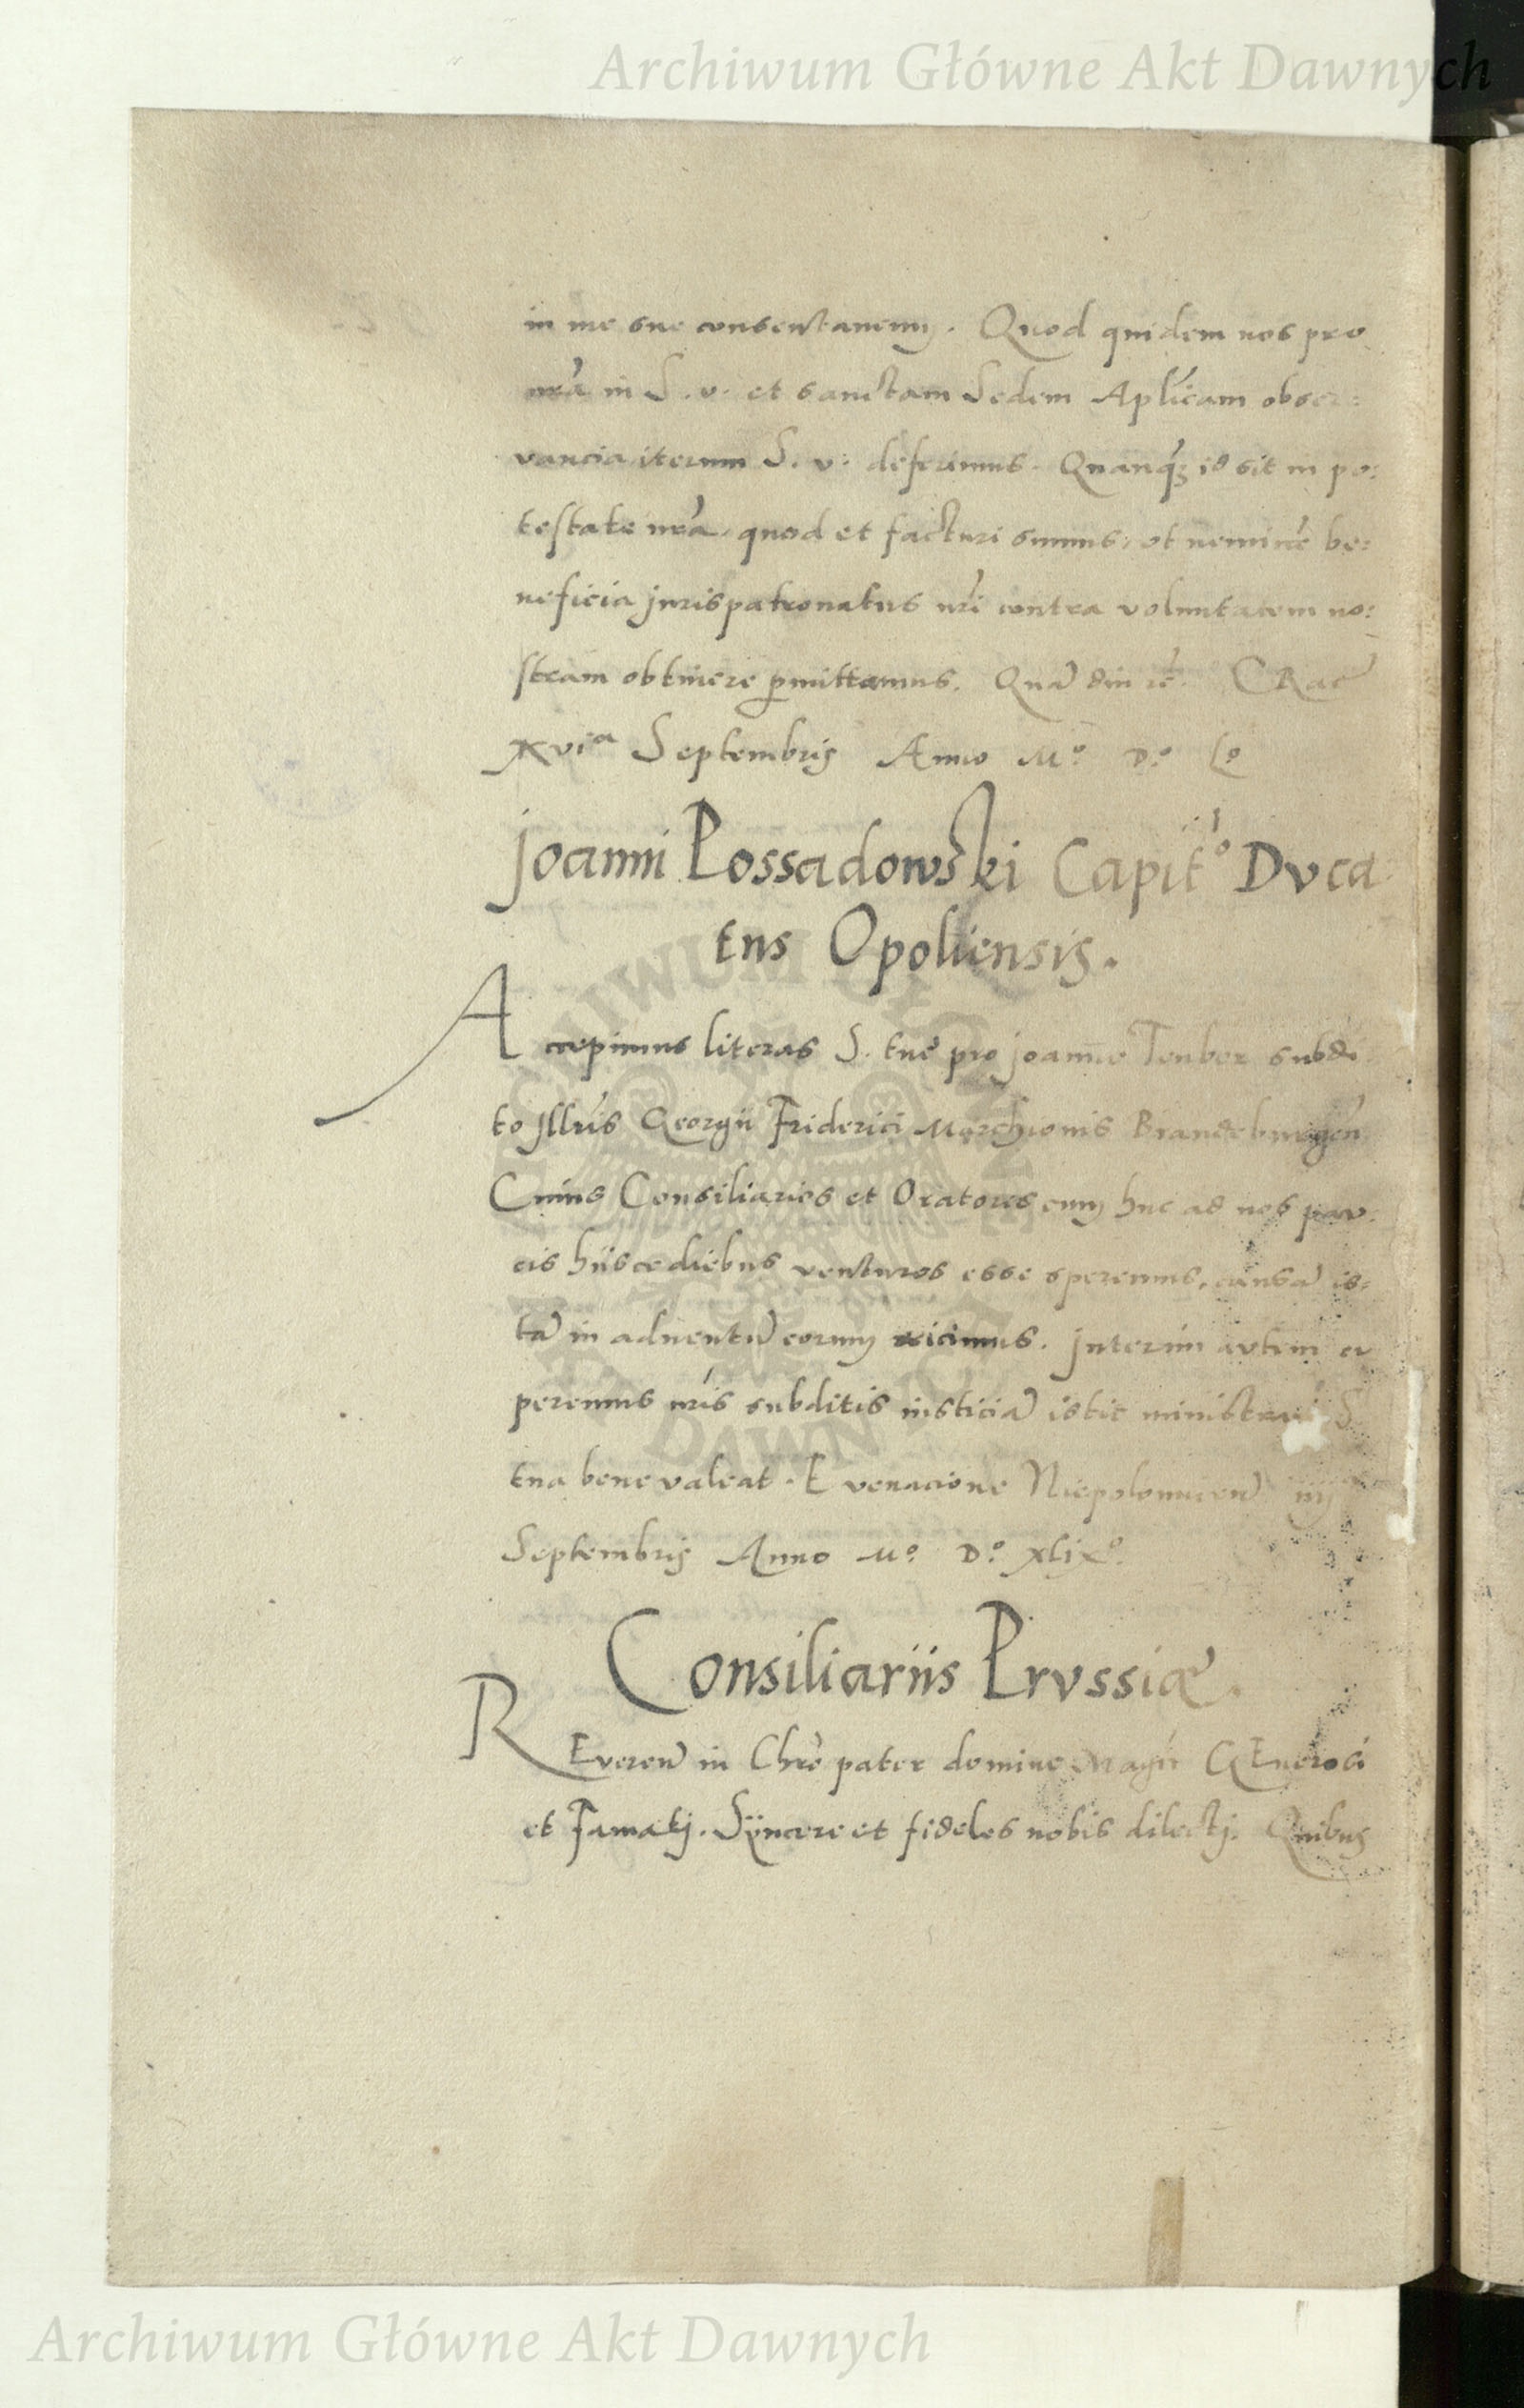 Archiwum Główne Akt Dawnych
in me sue consentaneum. Quod quidem nos pro
nrã in S. v. et sanctam Sedem Aplicam obser:
vancia iterum S. v. deferimus. Quanq̃ id sit in po:
testate nrã, quod et facturi sumus, ut neminẽ be:
neficia jurispatronatus nri contra voluntatem no:
stram obtinere pmittamus. Quã diu rẽ. CRac
xvia Septembris Anno Mo. Do. Lo
Joanni Possadowski Capito Duca
tus Opoliensis.
Accepimus literas S. tuẽ pro joanne Teuber subdi
to Jllris Georgii Friderici Marchionis Brandeburgeñ
Cuius Consiliarios et Oratores cum huc ad nos pau
cis hiisce diebus venturos esse speremus, causã is:
tã in adventũ eorum reicimus. Interim autem cu
peremus nris subditis iusticiã istic ministrari S
tua bene valeat. E venacione Niepolomiceñ iiij
Septembris Anno Mo. Do. xlixo.
Consiliariis Prussiæ.
REvereñ in Chrõ pater domine Magci GEnerosi
et Famatj. Sÿncere et fideles nobis dilectj. Quibus
Archiwum Główne Akt Dawnych